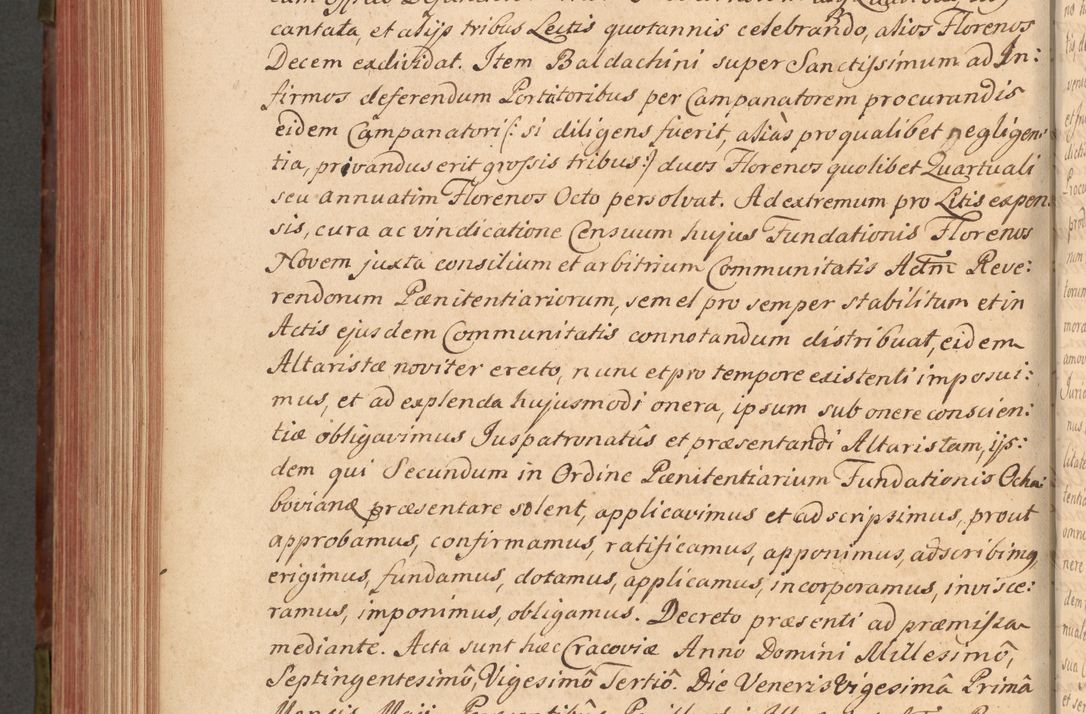 cantata, et alijs tribus Lectis quotannis celebrando, alios Florenos
Decem exdividat. Item Baldachini super Sanctissimum ad In:
firmos deferendum Portitoribus per Campanatorem procurandis
eidem Campanatori (: si diligens fuerit, aliàs pro qualibet negligen:
tia, privandus erit grossis tribus :) duos Florenos quolibet Quartuali
seu annuatim Florenos Octo persolvat. Ad extremum pro Litis expen:
sis, cura ac vindicatione Censuum hujus Fundationis Florenos
Novem juxta consilium et arbitrium Communitatis Adm Reve:
rendorum Pænitentiariorum, semel pro semper stabilitum et in
Actis ejusdem Communitatis connotandum distribuat, eidem
Altaristæ noviter erecto, nunc et pro tempore existenti imposui:
mus, et ad explenda hujusmodi onera, ipsum sub onere conscien:
tiæ obligavimus Juspatronatûs et præsentandi Altaristam, ijs:
dem qui Secundum in Ordine Pænitentiarium Fundationis Ocha:
bovianæ præsentare solent, applicavimus et adscripsimus, prout
approbamus, confirmamus, ratificamus, apponimus, adscribimus,
erigimus, fundamus, dotamus, applicamus, incorporamus, invisce:
ramus, imponimus, obligamus. Decreto præsenti ad præmissa
mediante. Acta sunt hæc Cracoviæ Anno Domini Millesimô,
Septingentesimô, Vigesimô Tertiô. Die Veneris Vigesimâ Primâ